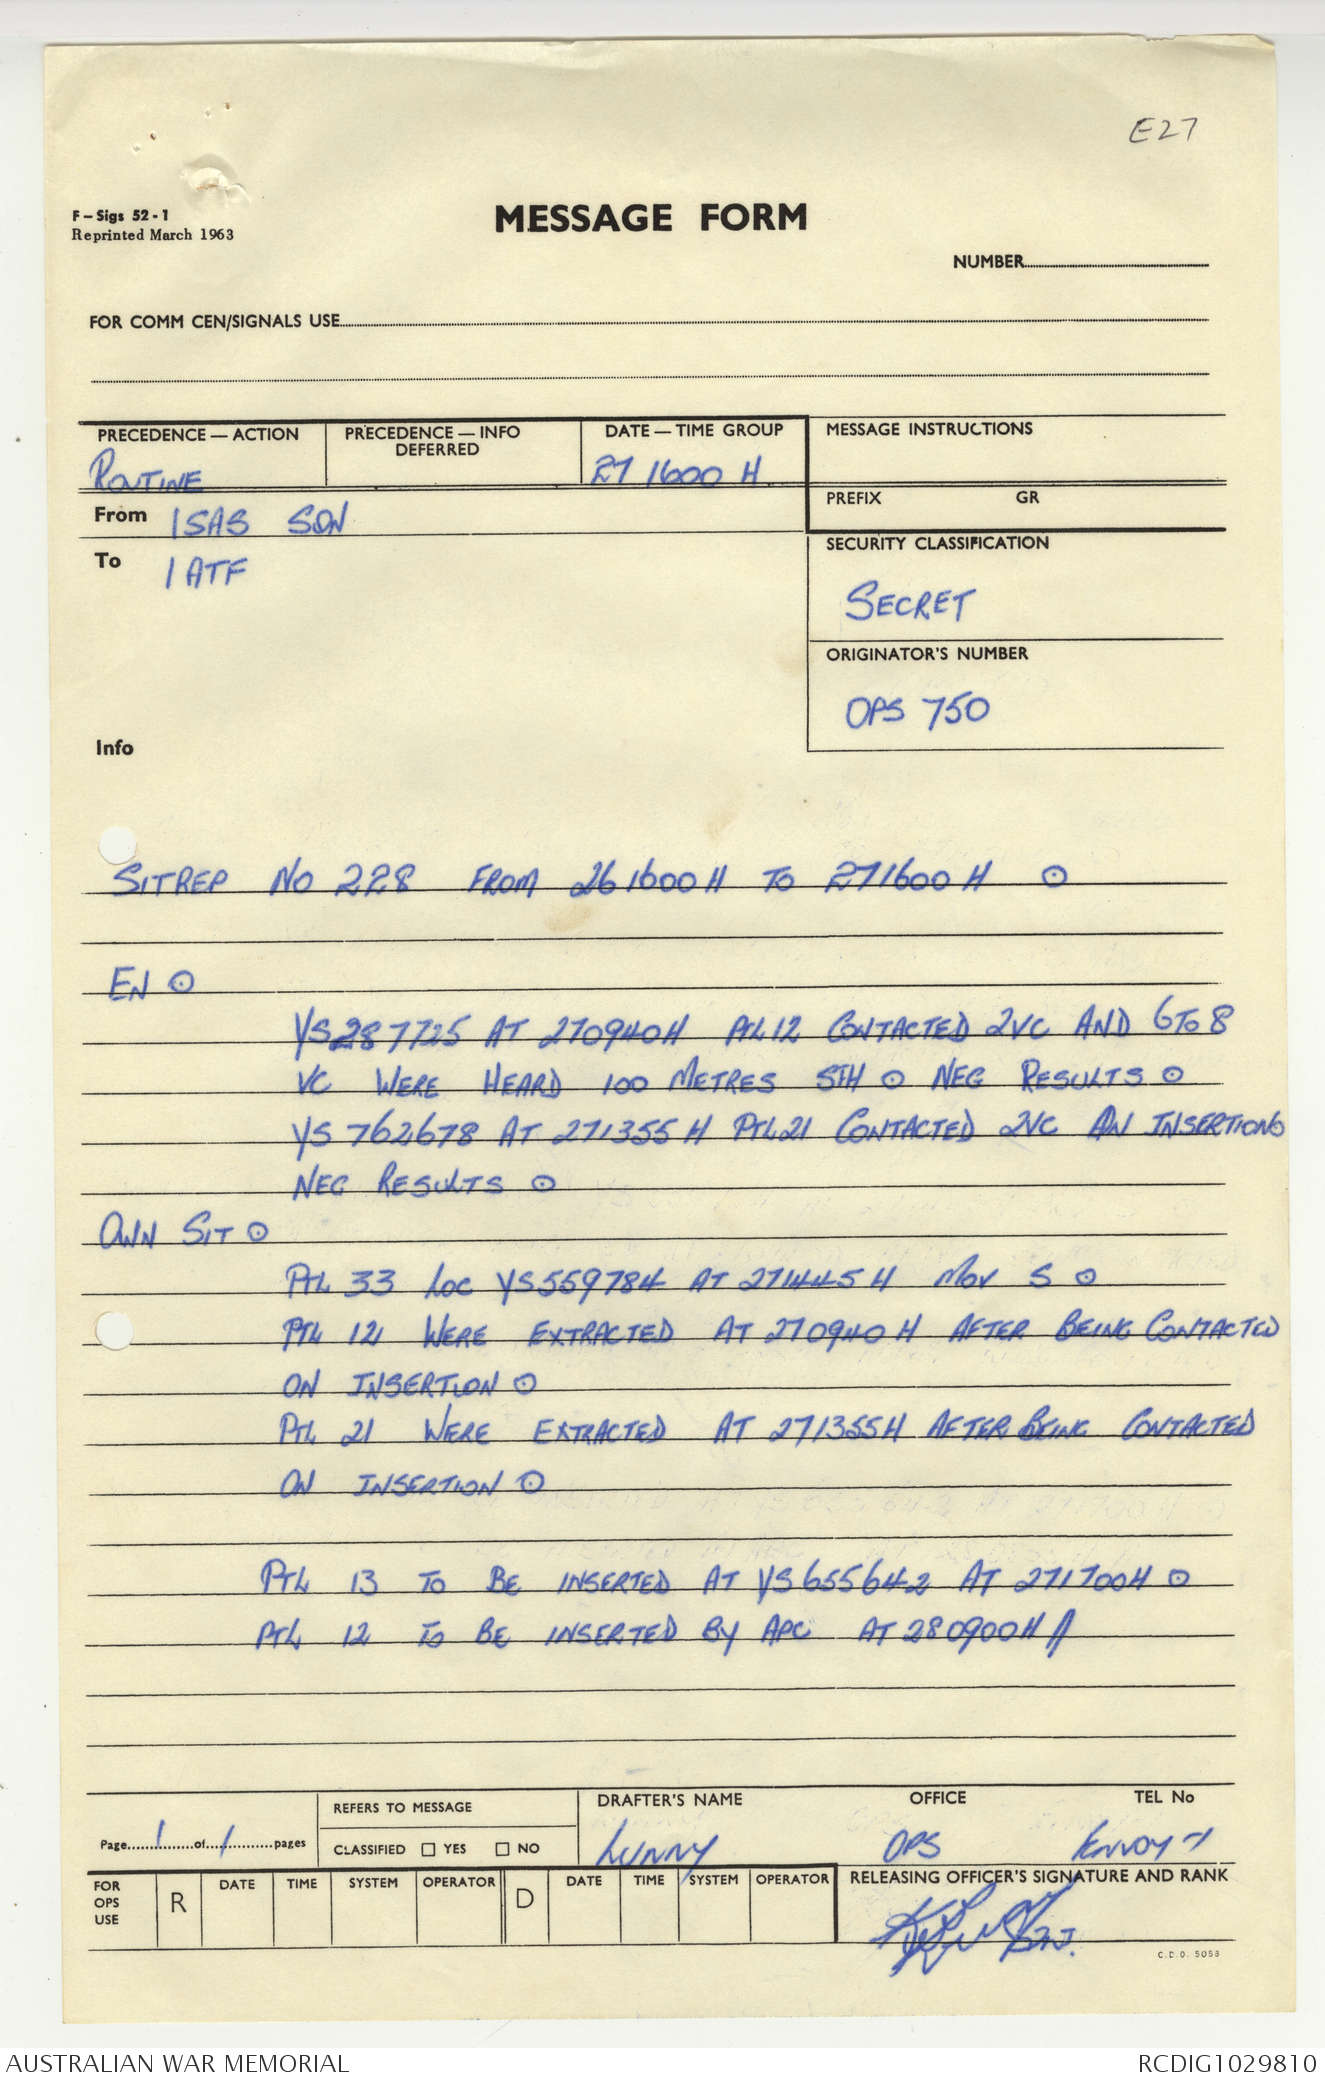 E27
F - Sigs 52 - 1
Reprinted March 1963
MESSAGE FORM
NUMBER
FOR COMM CEN/SIGNALS USE
PRECEDENCE — ACTION
ROUTINE
PRECEDENCE — INFO
DEFERRED
DATE — TIME GROUP
271600 H
MESSAGE INSTRUCTIONS
PREFIX GR
From 1 SAS SQN
To 1 ATF
SECURITY CLASSIFICATION
SECRET
ORIGINATOR'S NUMBER
OPS 750
Info
SITREP NO 228 FROM 261600 H TO 271600 H ⊙
EN ⊙
YS 287725 AT 270940H PTL 12 CONTACTED 2 VC AND 6 TO 8
VC WERE HEARD 100 METRES STH ⊙ NEG RESULTS ⊙
YS 762678 AT 271355 H PTL 21 CONTACTED 2VC ON INSERTION ⊙
NEG RESULTS ⊙
OWN SIT ⊙
PTL 33 LOC YS 559784 AT 271445 H MOV S ⊙
PTL 12 WERE EXTRACTED AT 270940 H AFTER BEING CONTACTED
ON INSERTION ⊙
PTL 21 WERE EXTRACTED AT 271355H AFTER BEING CONTACTED
ON INSERTION ⊙
PTL 13 TO BE INSERTED AT YS 655642 AT 271700H ⊙
PTL 12 TO BE INSERTED BY APC AT 280900H //
Page 1 of 1 pages
REFERS TO MESSAGE
CLASSIFIED ☐ YES ☐ NO
DRAFTER'S NAME
LUNNY
OFFICE
OPS
TEL No
ENVOY 7
FOR OPS USE
R DATE TIME SYSTEM OPERATOR
D DATE TIME SYSTEM OPERATOR
RELEASING OFFICER'S SIGNATURE AND RANK
C.D.O. 5058
AUSTRALIAN WAR MEMORIAL
RCDIG1029810